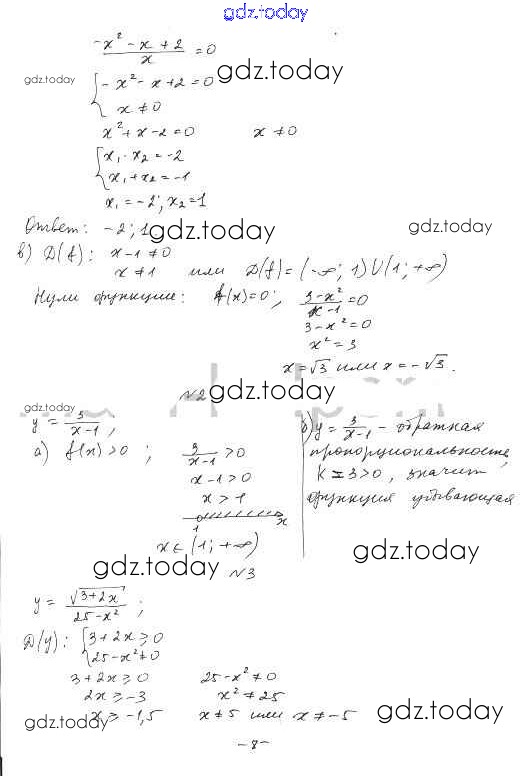 gdz.today
-x² - x + 2 / x = 0
gdz.today
{ -x² - x + 2 = 0
gdz.today
x ≠ 0
x² + x - 2 = 0 x ≠ 0
{ x₁ · x₂ = -2
x₁ + x₂ = -1
x₁ = -2; x₂ = 1
Ответ: -2; 1.
gdz.today
gdz.today
в) D(f): x - 1 ≠ 0
x ≠ 1 или D(f) = (-∞; 1) U (1; +∞)
Нули функции: f(x) = 0; 3 - x² / x - 1 = 0
3 - x² = 0
x² = 3
x = √3 или x = -√3.
№2
gdz.today
gdz.today
y = 3 / x - 1,
а) f(x) > 0; 3 / x - 1 > 0
x - 1 > 0
x > 1
1 x
x ∈ (1; +∞)
б) y = 3 / x - 1 - обратная
пропорциональность,
K = 3 > 0, значит
функция убывающая
gdz.today
gdz.today
№3
y = √3 + 2x / 25 - x²;
D(y): { 3 + 2x ≥ 0
25 - x² ≠ 0
3 + 2x ≥ 0 25 - x² ≠ 0
2x ≥ -3 x² ≠ 25
x ≥ -1,5 x ≠ 5 или x ≠ -5
gdz.today
gdz.today
- 8 -